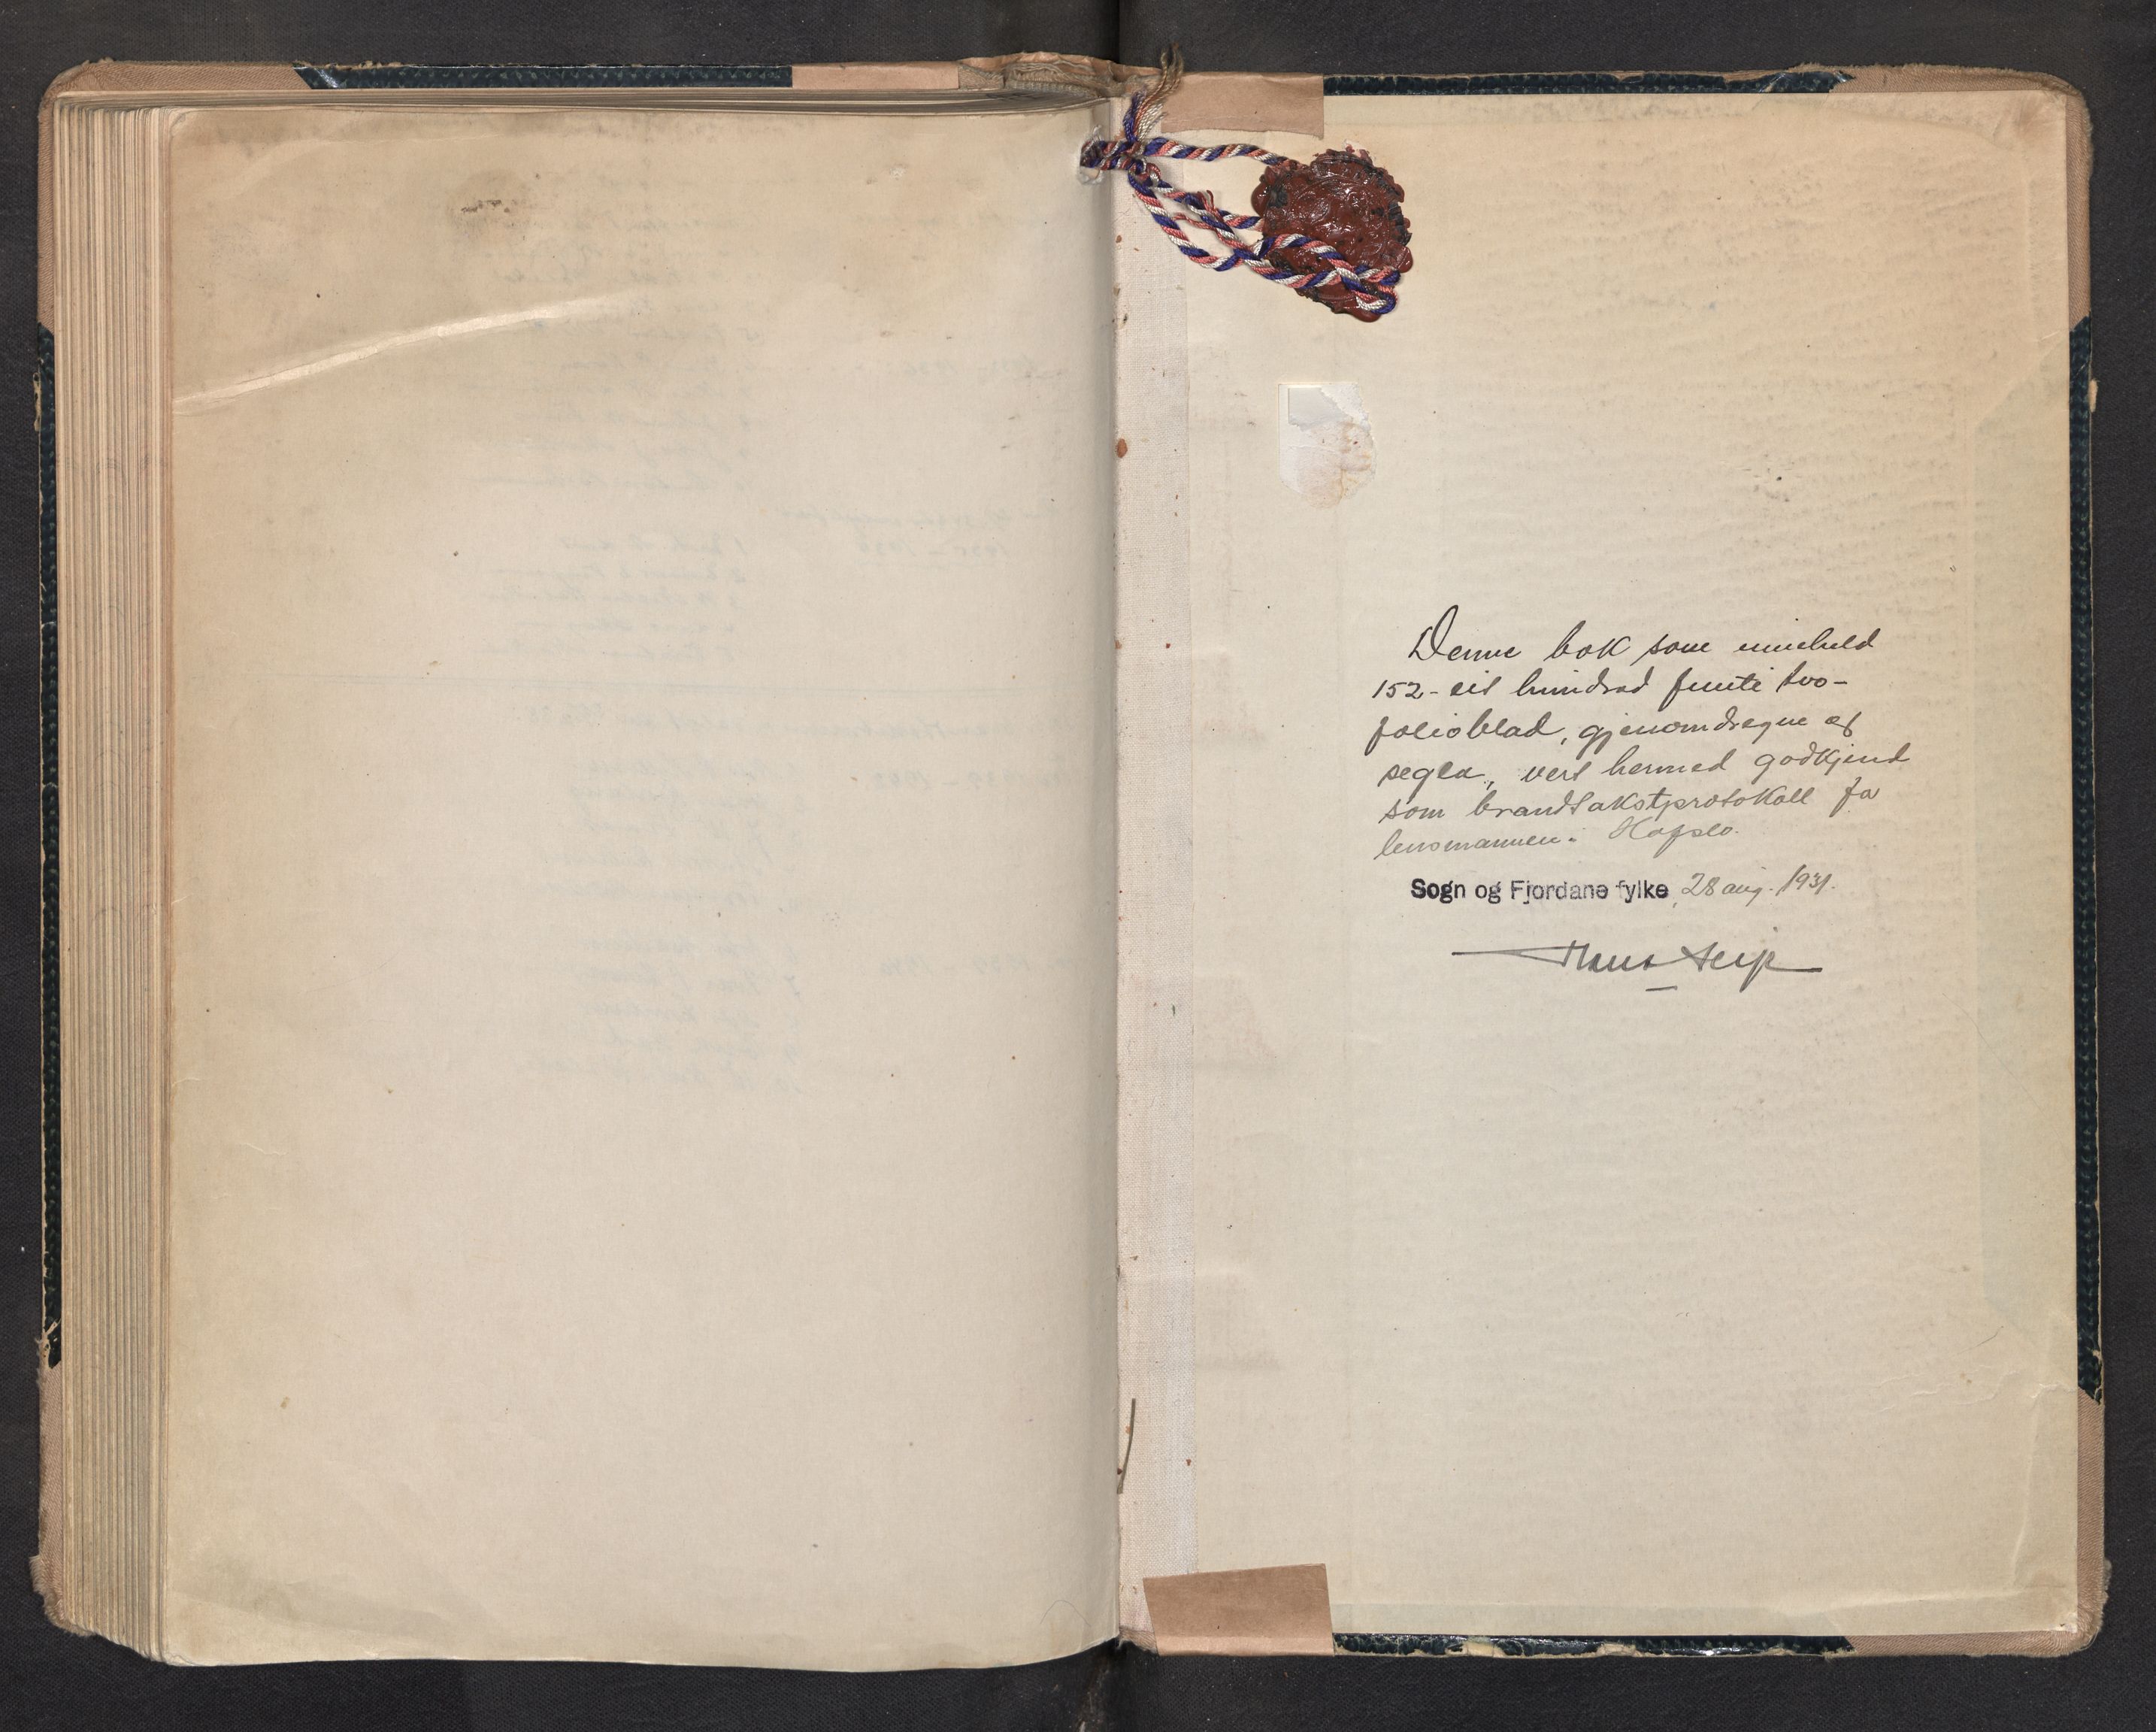 Denne bok som inneheld
152 - eit hundrad femti tvo -
folioblad, gjenomdregne og
segla, vert hermed godkjend
som brandtakstprotokoll for
lensmannen i Hafslo.
Sogn og Fjordane fylke, 28 aug. 1931.
Hans Seip